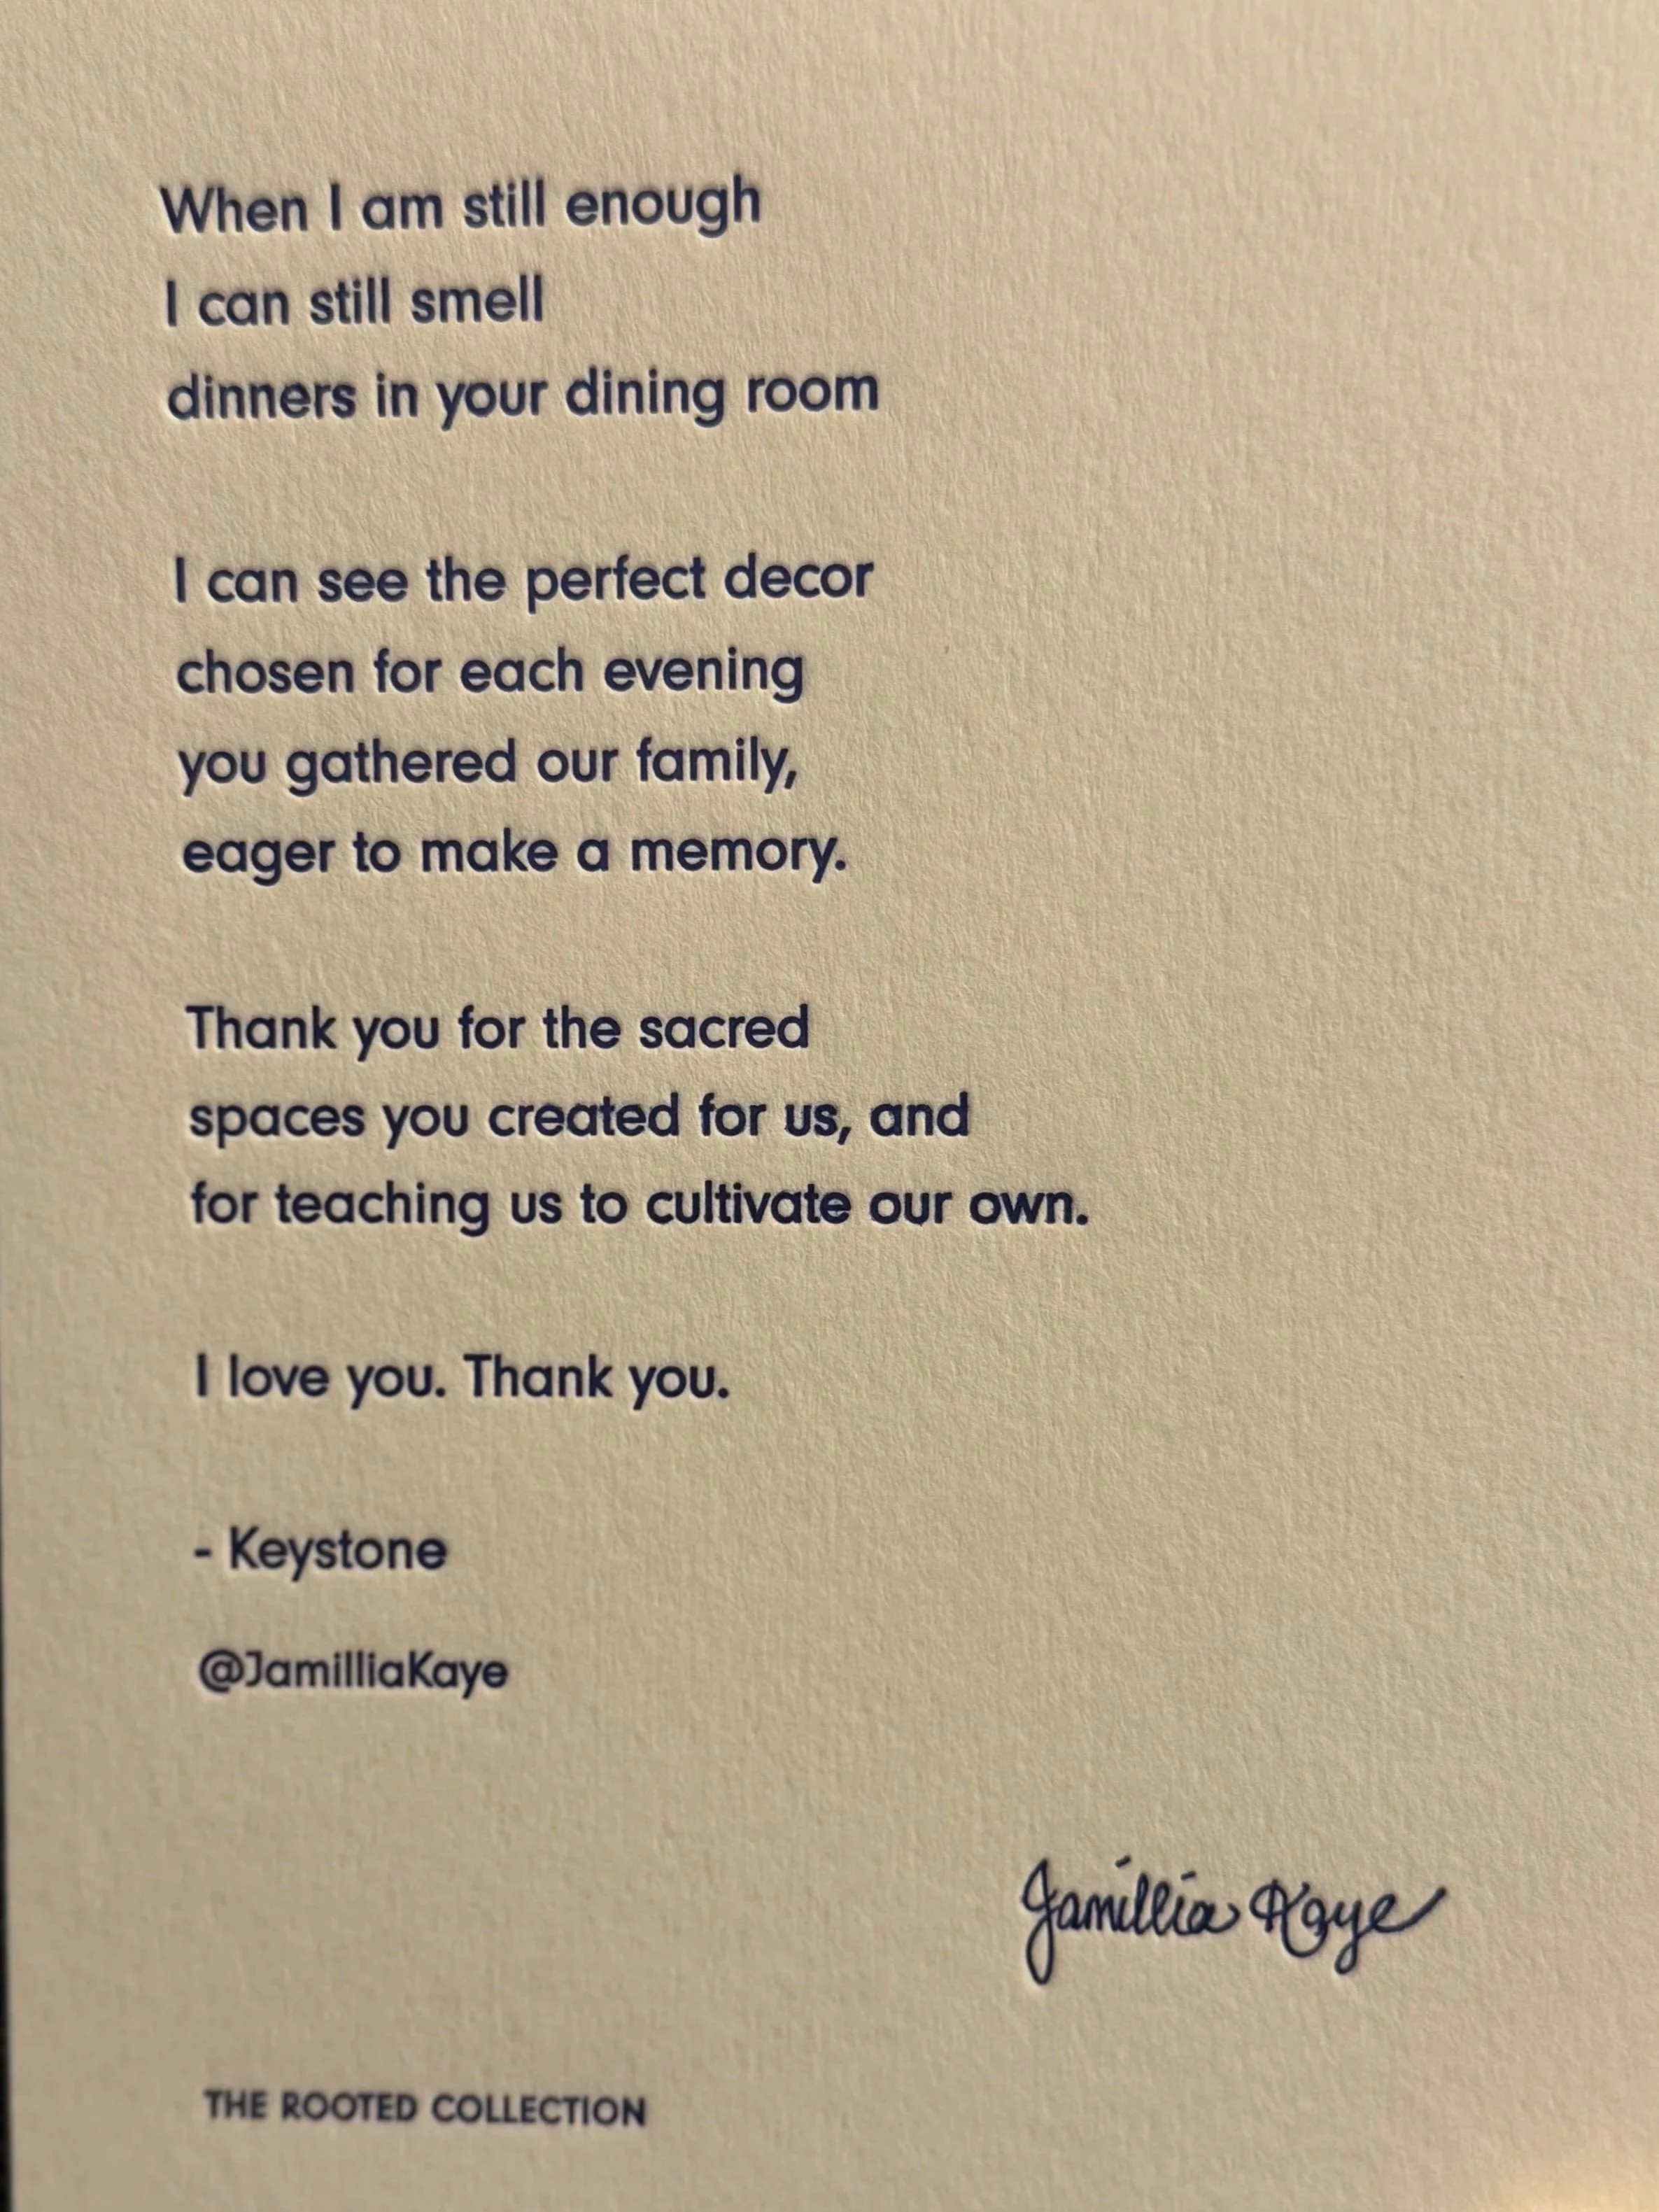 When I am still enough
I can still smell
dinners in your dining room
I can see the perfect decor
chosen for each evening
you gathered our family,
eager to make a memory.
Thank you for the sacred
spaces you created for us, and
for teaching us to cultivate our own.
I love you. Thank you.
- Keystone
@JamilliaKaye
Jamillia Kaye
THE ROOTED COLLECTION